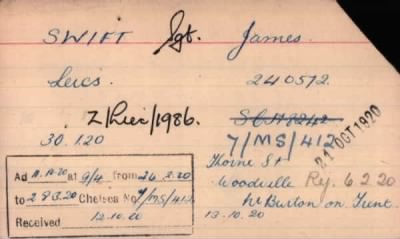 SWIFT Sgt. James.
Leics. 240572.
Z/Leic/1986. S C H 8242
30.1.20 7/MS/412 21 OCT 1920
Thorne St
Woodville Rej. 6 2 20
Nr Burton on Trent.
13.10.20
Ad 11.10.20 at 9/4 from 26.2.20
to 2 9 3.20 Chelsea No 7/MS/412
Received 12.10.20